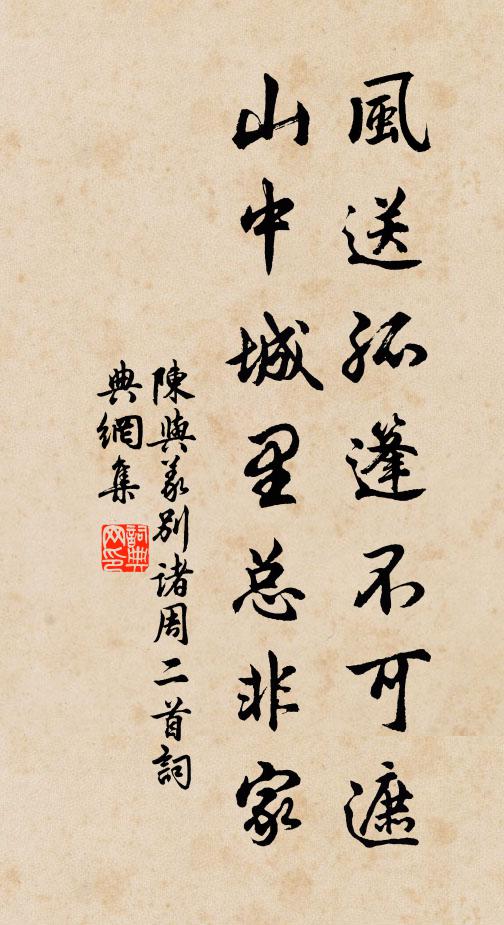 風送孤篷不可遮
山中城里总非家
陳與義別诸周二首詞
典網集
詞典
网印